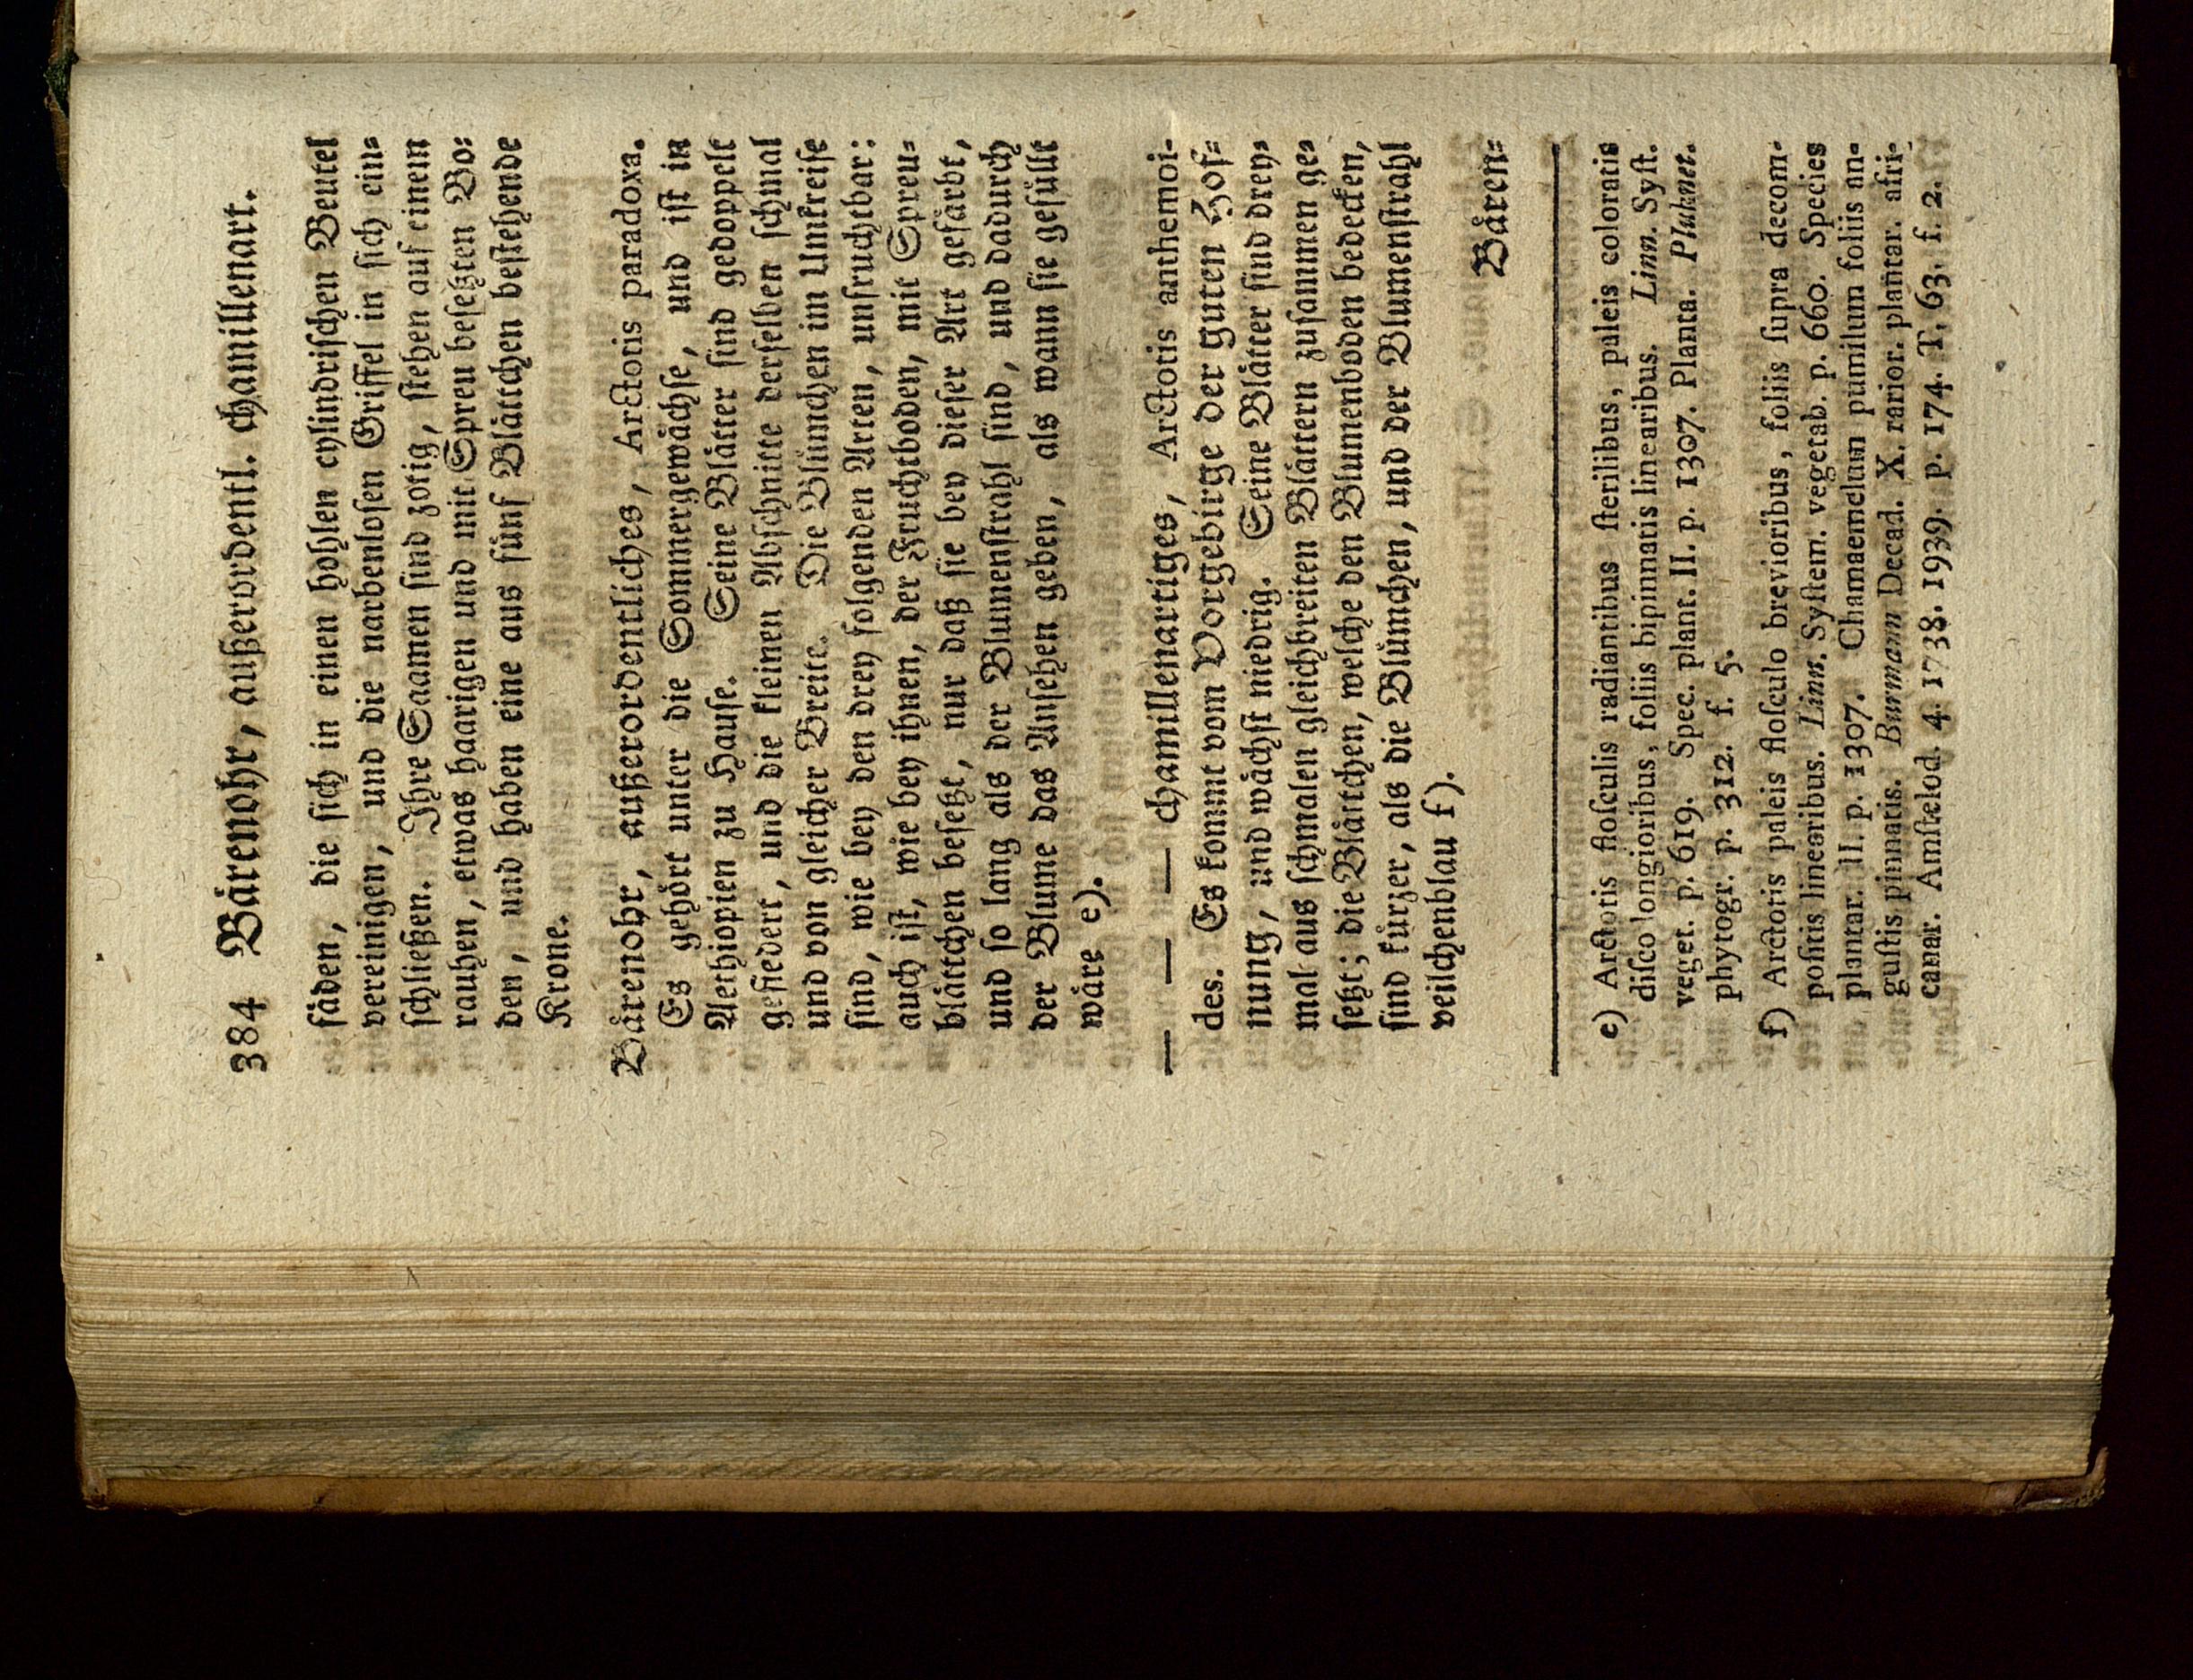 384 Bärenohr, außerordentl. chamillenart.
fäden, die sich in einen hohlen cylindrischen Beutel
vereinigen, und die narbenlosen Griffel in sich ein-
schließen. Ihre Saamen sind zotig, stehen auf einem
rauhen, etwas haarigen und mit Spreu besetzten Bo-
den, und haben eine aus fünf Blättchen bestehende
Krone.
Bärenohr, außerordentliches, Arctotis paradoxa.
Es gehört unter die Sommergewächse, und ist in
Aethiopien zu Hause. Seine Blätter sind gedoppelt
gefiedert, und die kleinen Abschnitte derselben schmal
und von gleicher Breite. Die Blümchen im Umkreise
sind, wie bey den drey folgenden Arten, unfruchtbar;
auch ist, wie bey ihnen, der Fruchtboden, mit Spreu-
blättchen besetzt, nur daß sie bey dieser Art gefärbt,
und so lang als der Blumenstrahl sind, und dadurch
der Blume das Ansehen geben, als wann sie gefüllt
wäre e).
— — — chamillenartiges, Arctotis anthemoi-
des. Es kommt vom Vorgebirge der guten Hof-
nung, und wächst niedrig. Seine Blätter sind drey-
mal aus schmalen gleichbreiten Blättern zusammen ge-
setzt; die Blättchen, welche den Blumenboden bedecken,
sind kürzer, als die Blümchen, und der Blumenstrahl
veilchenblau f).
Bären-
e) Arctotis floſculis radiantibus ſterilibus, paleis coloratis
diſco longioribus, foliis bipinnatis linearibus. Linn. Syſt.
veget. p. 619. Spec. plant. II. p. 1307. Planta. Pluknet.
phytogr. p. 312. f. 5.
f) Arctotis paleis floſculo brevioribus, foliis ſupra decom-
poſitis linearibus. Linn. Syſtem. vegetab. p. 660. Species
plantar. II. p. 1307. Chamaemelum pumilum foliis an-
guſtis pinnatis. Burmann Decad. X. rarior. plantar. afri-
canar. Amſtelod. 4. 1738. 1939. p. 174. T. 63. f. 2.